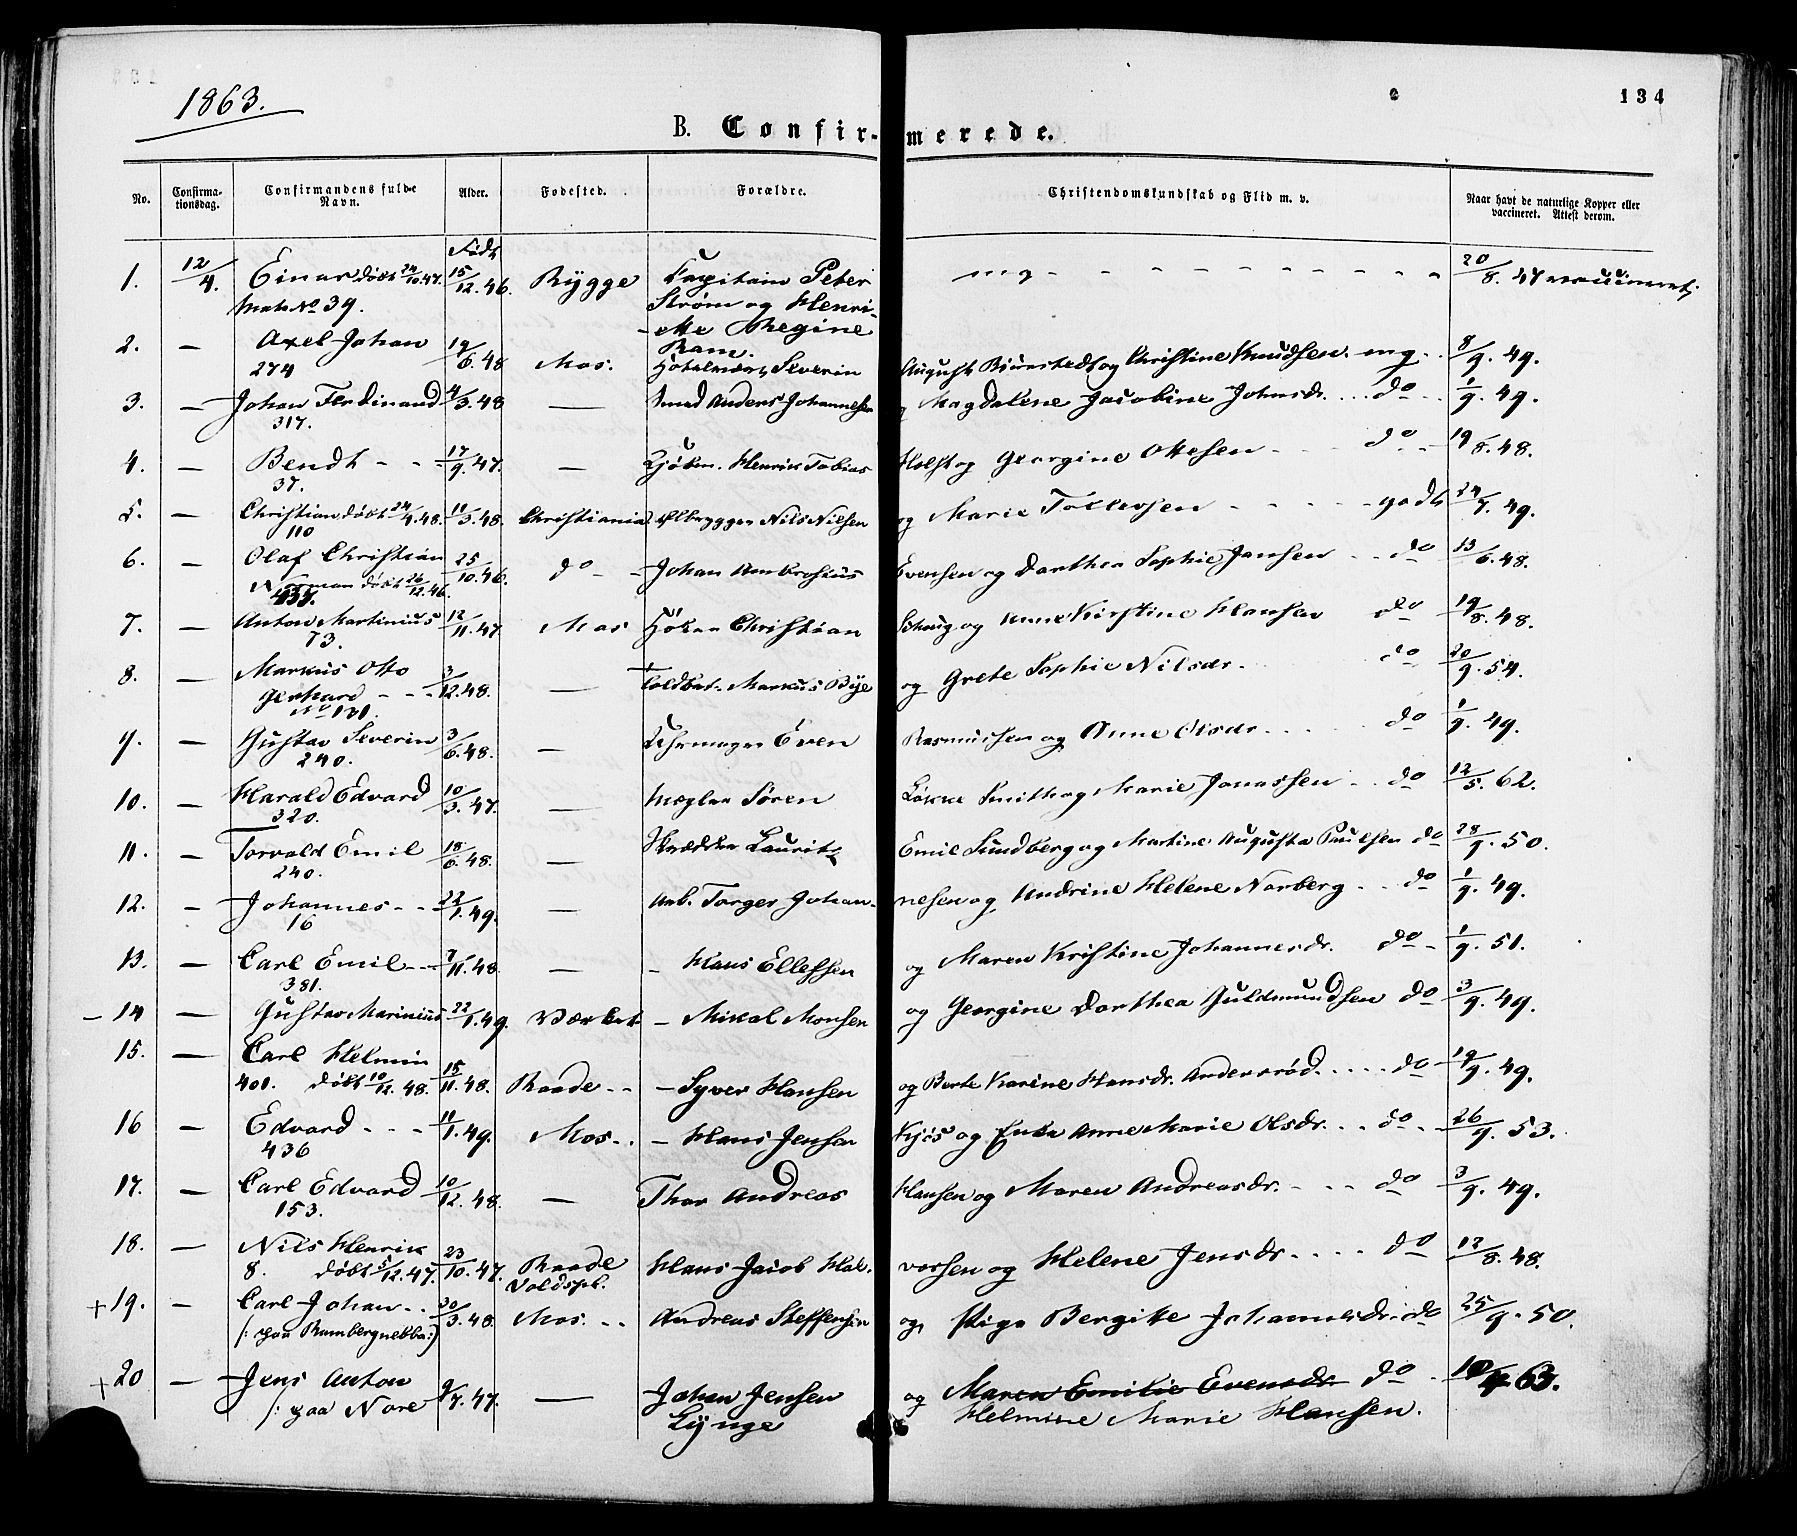 1863.
134
B. Confirmerede.
No. Confirmationsdag. Confirmandens fulde Navn. Alder. Fødested. Forældre. Christendomskundskab og Flid m. v. Naar havt de naturlige Kopper eller vaccineret. Attest derom.
Født
1. 12/4. Einar døbt 24/10.47. 15/12.46. Rygge Capitain Peter mg - - - 20/8.47 vaccineret;
No 39. Strøm og Henri-
ette Regine
Ram.
2. — Axel Johan 19/6.48 Mos. Severin August Bjørnstedt og Christine Knudsen. mg. 8/9.49.
274
3. — Johan Ferdinand 4/3.48 — Smed Anders Johannesen og Magdalene Jacobine Johnsdr. do 1/9.49.
317.
4. — Bendt - - 17/9.47. — Henrik Tobias Holst og Georgine Ottesen - do 19/8.48.
37.
5. — Christian døbt 24/4.48. 11/3.48. Christiania Ølbrygger Nils Nilsen og Marie Tollefsen - - - godt 24/7.49.
110
6. — Olaf Christian 25/10.46. do - Johan Ambrosius Evensen og Dorthea Sophie Jansen - do 13/6.48.
Norman døbt 26/12.46.
7. — Anton Martinius 12/11.47. Mos Høker Christian Schaug og Anne Kirstine Hansen do 19/8.48.
73.
8. — Markus Otto 3/12.48. — Toldbet. Markus Bye og Grete Sophie Nilsdr. do 20/9.54.
Gerhard - -
No 131.
9. — Gustav Severin 3/6.48. — Uhrmager Even Rasmussen og Anne Olsdr. do 1/9.49.
240.
10. — Harald Edvard 10/3.47. — Mægler Søren Løkke Smith og Marie Jonassen - do 12/5.62.
320.
11. — Torvald Emil 18/6.48. — Skrædder Laurits Emil Sundberg og Martine Augusta Paulsen do 28/9.50.
240.
12. — Johannes - - 22/1.49. — Arb. Torger Johan- nesen og Andrine Helene Norberg - do 1/9.49.
16
13. — Carl Emil - - 7/11.48. — - Hans Ellefsen og Maren Kristine Johannesdr. do - 1/9.51.
381.
- 14 — Gustav Marinius 22/1.49. Værket - Mikal Monsen og Georgine Dorthea Guldmundsen do 3/9.49.
15. — Carl Helmin 15/11.48. Raade - - - Syver Hansen og Berte Karine Hansdr. Andersrød. do 19/9.49.
401. døbt 10/12.48.
16 — Edvard - - - 11/1.49. Mos. - - Hans Jensen Kjøs og Enke Anne Marie Olsdr. do 26/9.53.
436
17. — Carl Edvard 10/12.48. — Thor Andreas Hansen og Maren Andreasdr. - - - do 3/9.49.
153.
18. — Nils Henrik 23/10.47. Raade Hans Jacob Hal- vorsen og Helene Jensdr. do 12/8.48.
8. døbt 5/12.47.
+ 19. — Carl Johan - - 30/3.48. Mos. - - Andreas Steffensen og Pige Bergitte Johannesdr. do 25/9.50.
+ 20 — Jens Anton 9/7.47. — Johan Jensen og Maren Emilie Evensdr do - 10/4 63.
/: paa Nore Lynge Helmine Marie Hansen.